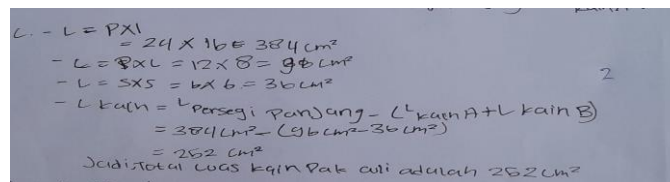 C. - L = PXl
= 24 X 16 = 384 cm²
- L = PXL = 12 X 8 = 96 cm²
- L = SXS = 6X6 = 36 cm²
2
- L kain = L Persegi Panjang - (L kain A + L kain B)
= 384 cm² - (96 cm² - 36 cm²)
= 252 cm²
Jadi, Total Luas kain Pak adalah 252 cm²